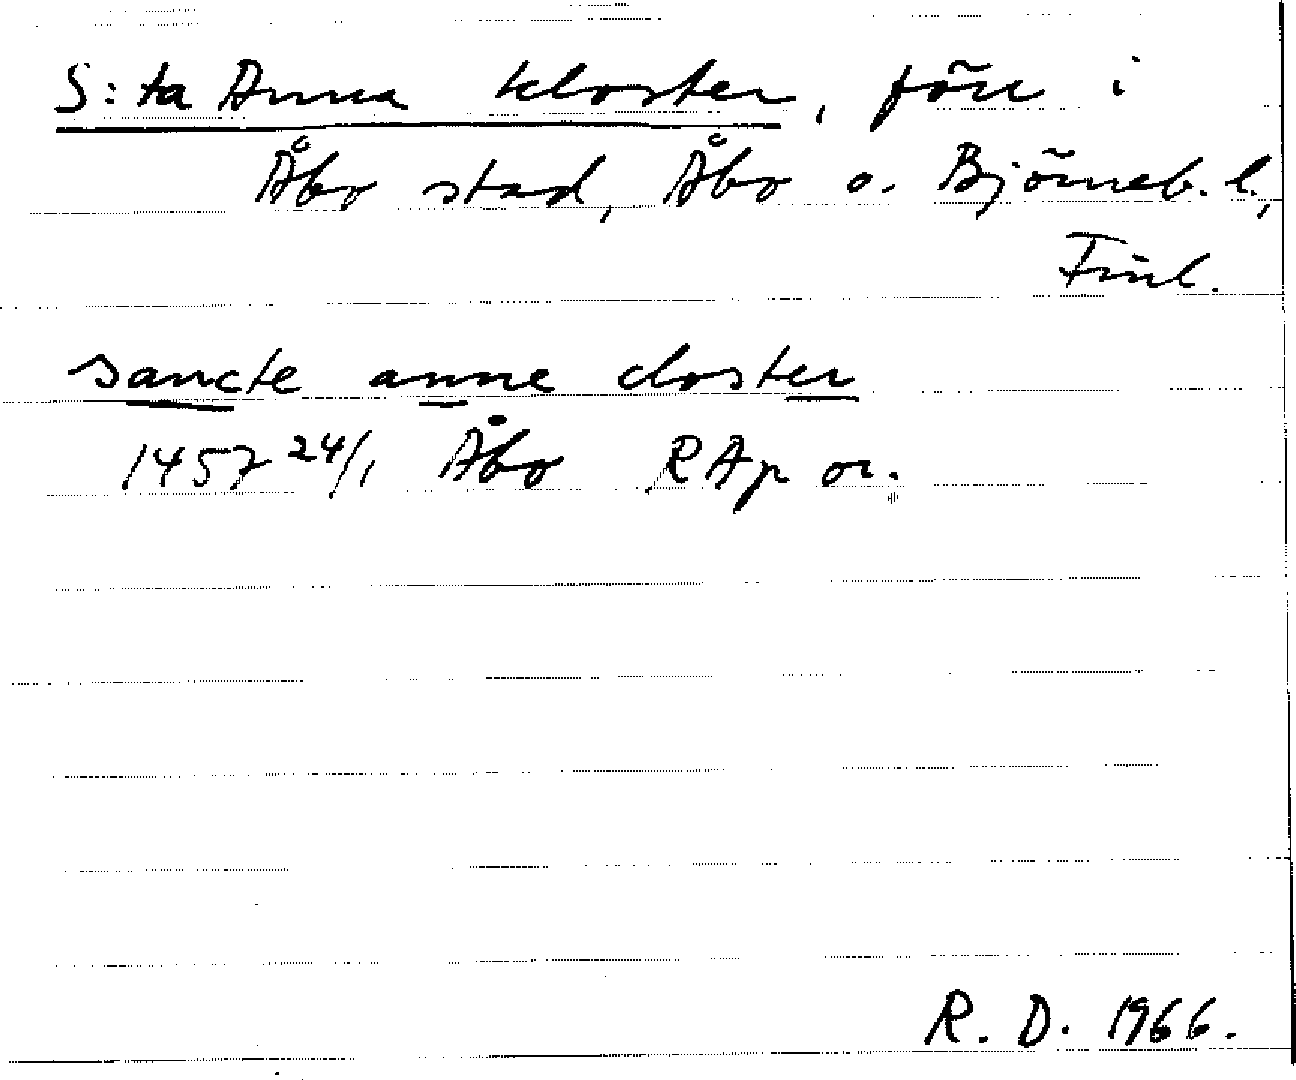 S:ta Anna kloster, förr i
Åbo stad, Åbo o. Björneb. l.,
Finl.
sancte anne closter
1457 24/1 Åbo RAp or.
R. D. 1966.